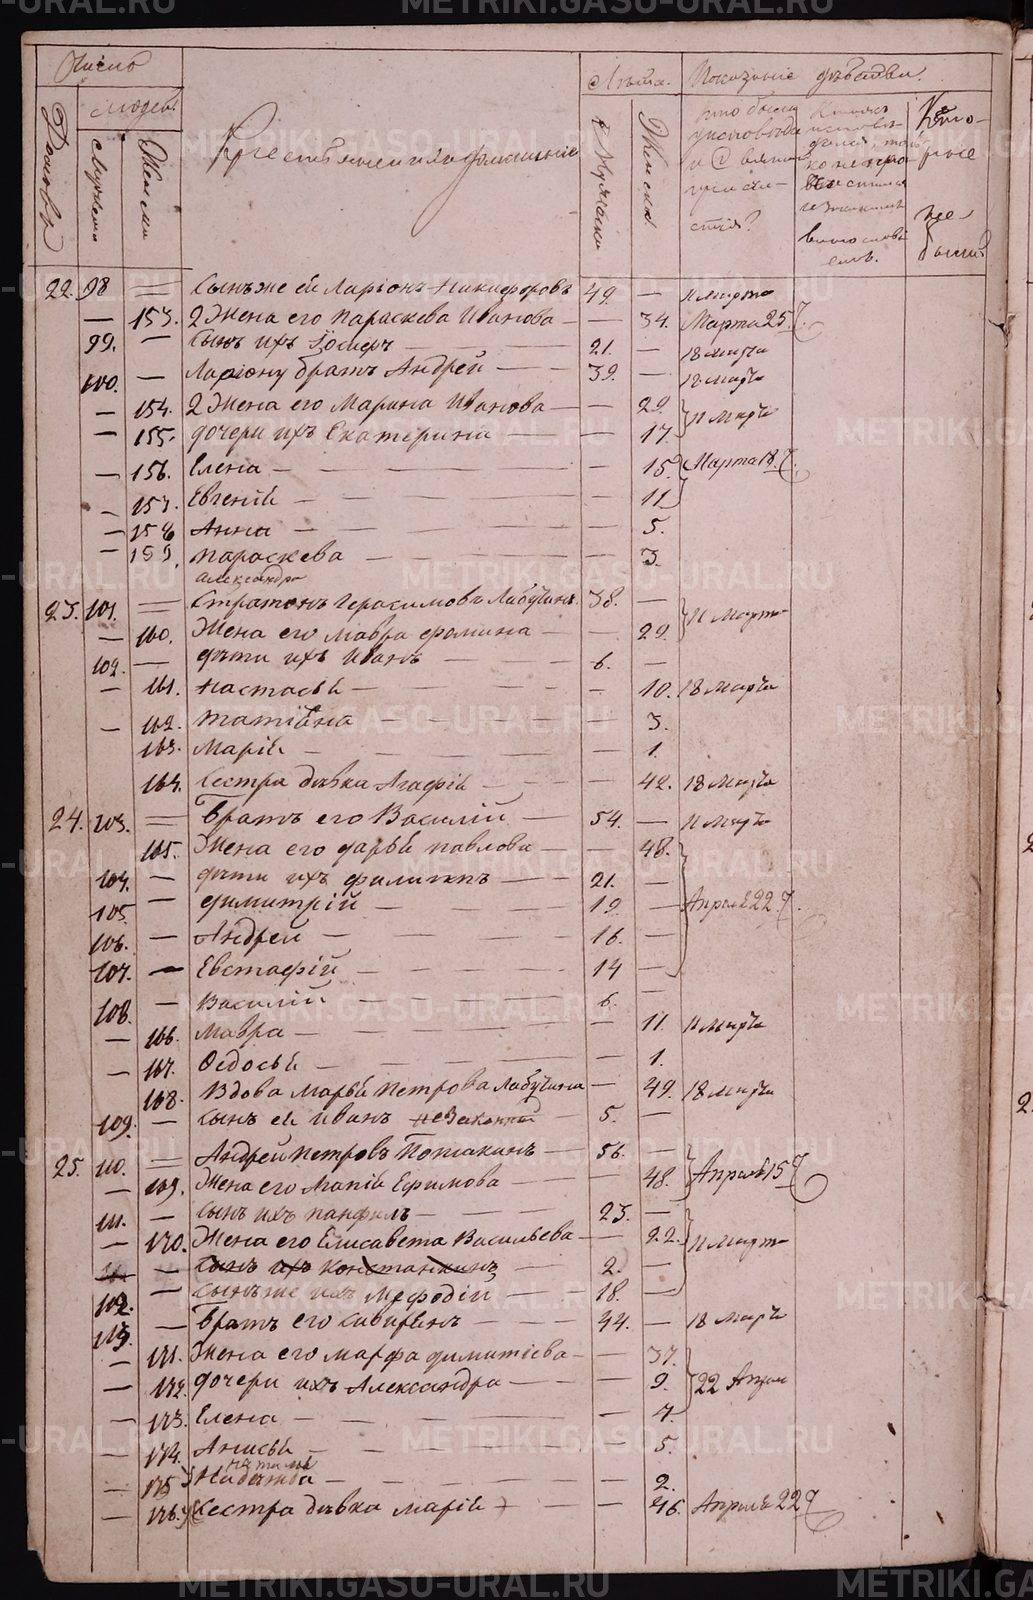 Число
Людей.
Дворовъ
Мужеска
Женска
Крестьяне и ихъ домашніе
Лѣта.
Мужеска
Женска
Показаніе дѣйства.
Кто были у исповѣди и С. вятаго причастія?
Которые не были
22. 98 = Сынъ же ей Ларіонъ Никифоровъ 49. — 11 марта
— 153. 2 Жена его Параскева Иванова — — 34. Марта 25.
99. — Сынъ ихъ Іосифъ — 21. — 18 марта
100. — Ларіону братъ Андрей — — 39. — 18 марта
— 154. 2 Жена его Марина Иванова — — 29. 11 марта
— 155. дочери ихъ Екатерина — — 17.
— 156. Елена — — 15. Марта 18.
— 157. Евгенія — — 11
— 158 Анна — — 5.
— 159. Параскева — — 3.
Александра
23. 101. = Стратонъ Герасимовъ Лабутинъ. 38. — 11 марта
— 160. Жена его Мавра Фомина — — 29.
102. — дѣти ихъ Иванъ — — 6. —
— 161. Настасья — — 10. 18 марта
— 162. Татіана — — 3.
163. Марія — — 1.
164. Сестра дѣвка Агафія — — 42. 18 марта
24. 103. = Братъ его Василій — 54. — 11 марта
165. Жена его Дарья Павлова — — 48.
104. — дѣти ихъ Филиппъ — 21. —
105 — Димитрій — 19. — Апрѣля 22
106. — Андрей — 16. —
107. — Евстафій — 14 —
108. — Василій — 6. —
— 166. Мавра — — 11. 11 марта
— 167. Ѳедосья — — 1.
168. Вдова Марья Петрова Лабутина — 49. 18 марта
109. — Сынъ ей Иванъ незаконный 5. —
25. 110. = Андрей Петровъ Потакинъ — 56. —
— 169. Жена его Агапія Ефимова — — 48. Апрѣля 15
111. — Сынъ ихъ Панфилъ — 23. —
— 170. Жена его Елисавета Васильева — — 22. 11 марта
— Сынъ ихъ Константинъ — 2. —
112. — Сынъ же ихъ Меѳодій — 18. —
113. — Братъ его — 44. — 18 марта
— 171. Жена его Марфа Димитріева — — 37.
— 172. дочери ихъ Александра — — 9. 22 Апрѣля
— 173. Елена — — 7.
— 174. Анисья — — 5.
Наталья
— 175 Надежда — — 2.
— 176. Сестра дѣвка Марія — — 46. Апрѣля 22
METRIKI.GASO-URAL.RU